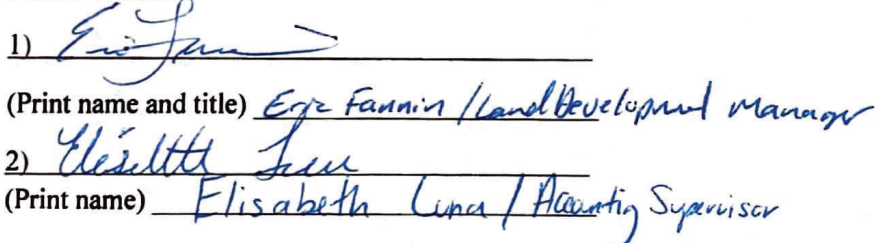 1)
(Print name and title) Eric Fannin / Land Development Manager
2) Elisabeth Luna
(Print name) Elisabeth Luna / Accounting Supervisor